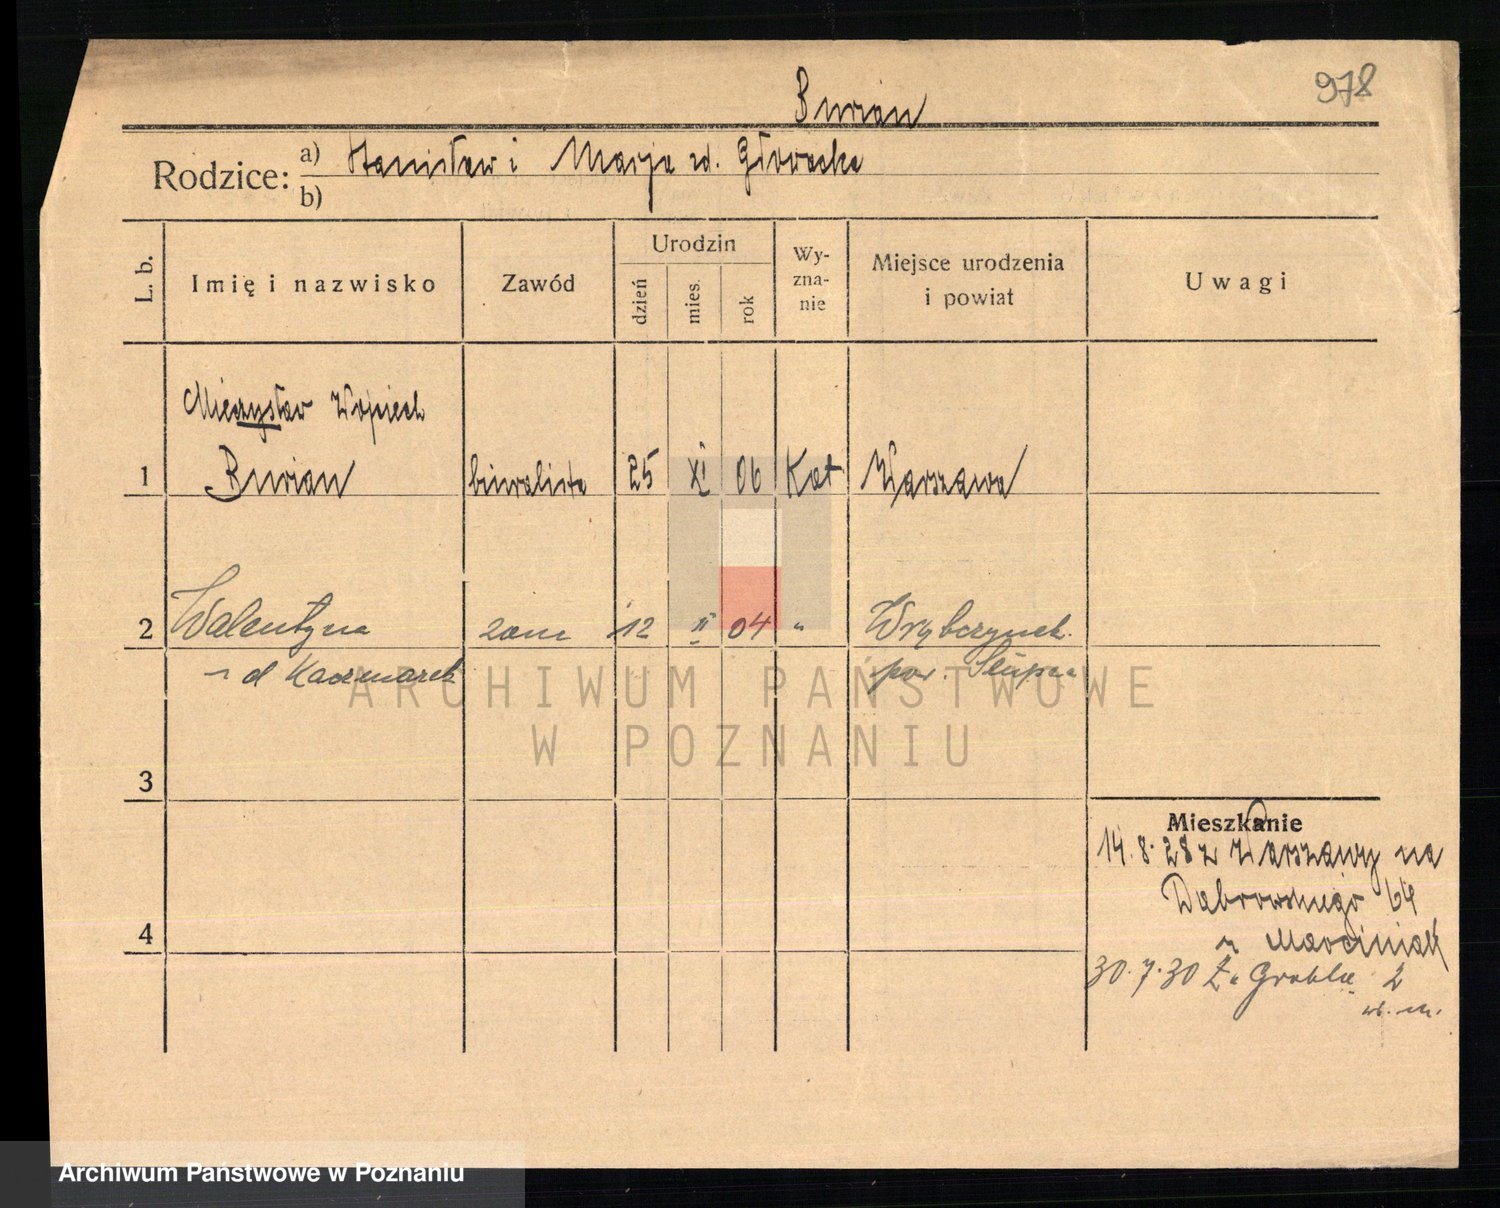 978
Burian
Rodzice: a) Stanisław i Marja zd. Głowacka
b)
L. b. Imię i nazwisko Zawód Urodzin dzień mies. rok Wy-zna-nie Miejsce urodzenia i powiat Uwagi
Mieczysław Wojciech
1 Burian biuralista 25 XI 06 Kat Warszawa
2 Walentyna zam 12 II 04 " Wrąbczynek.
z d Kaczmarek pow. Słupca
ARCHIWUM PAŃSTWOWE
W POZNANIU
3
Mieszkanie
14.8.28 z Warszawy na
Dąbrowskiego 64
4
u Marciniak
30.7.30 Grobla 2
wł. m.
Archiwum Państwowe w Poznaniu